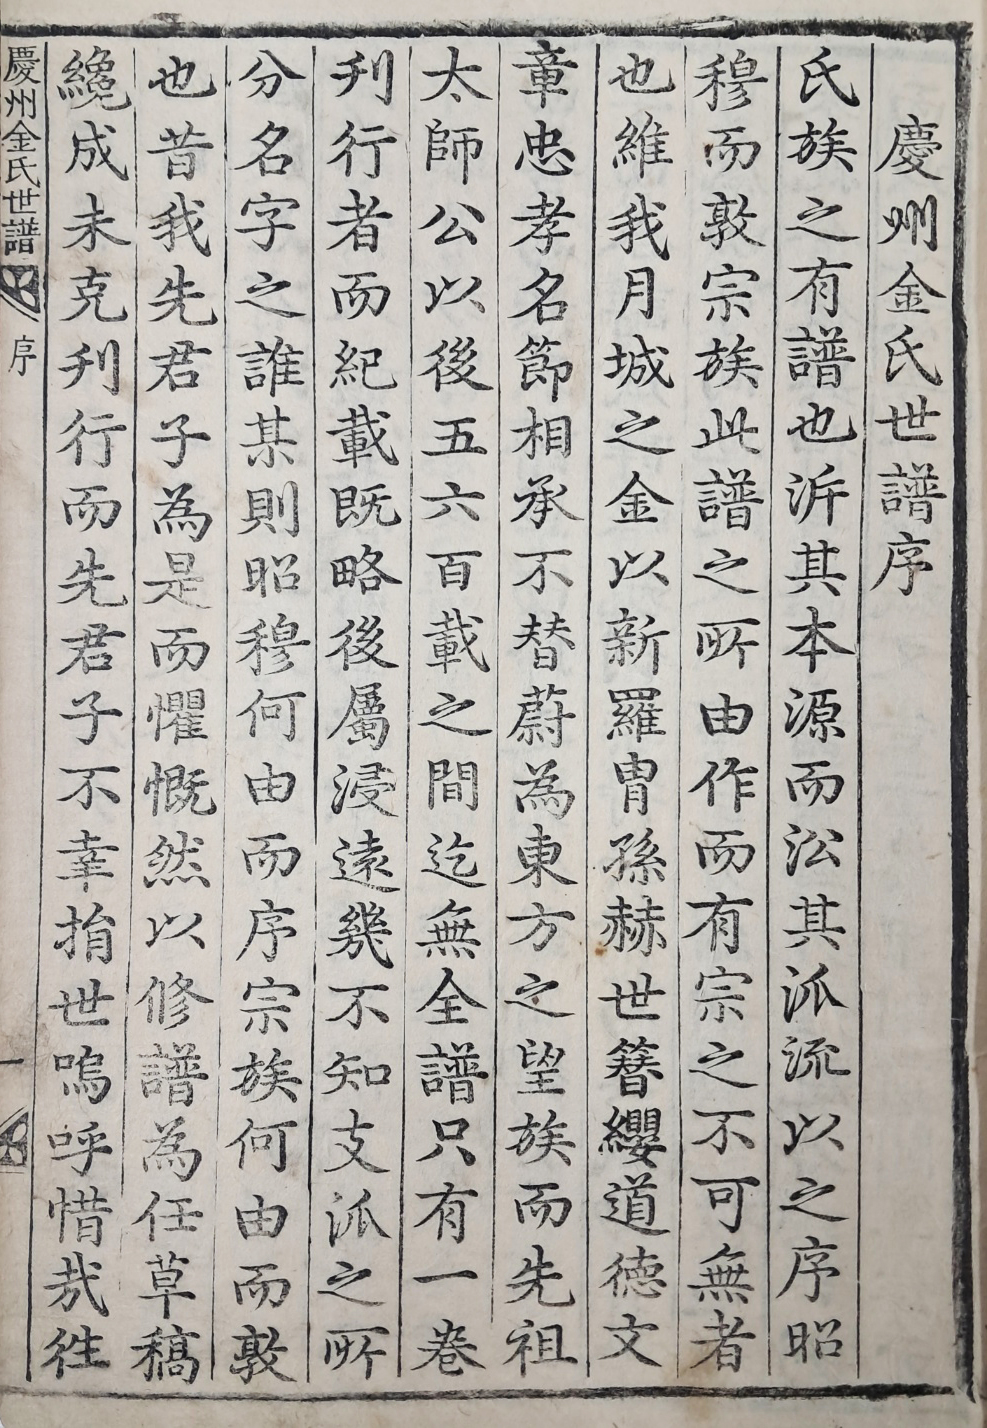 慶州金氏世譜序
氏族之有譜也泝其本源而沿其派流以之序昭
穆而敦宗族此譜之所由作而有宗之不可無者
也維我月城之金以新羅冑孫赫世簪纓道德文
章忠孝名節相承不替蔚為東方之望族而先祖
太師公以後五六百載之間迄無全譜只有一卷
刋行者而紀載既略後屬浸遠幾不知支派之所
分名字之誰某則昭穆何由而序宗族何由而敦
也昔我先君子為是而懼慨然以修譜為任草稿
纔成未克刋行而先君子不幸捐世嗚呼惜哉徃
慶州金氏世譜 序 一